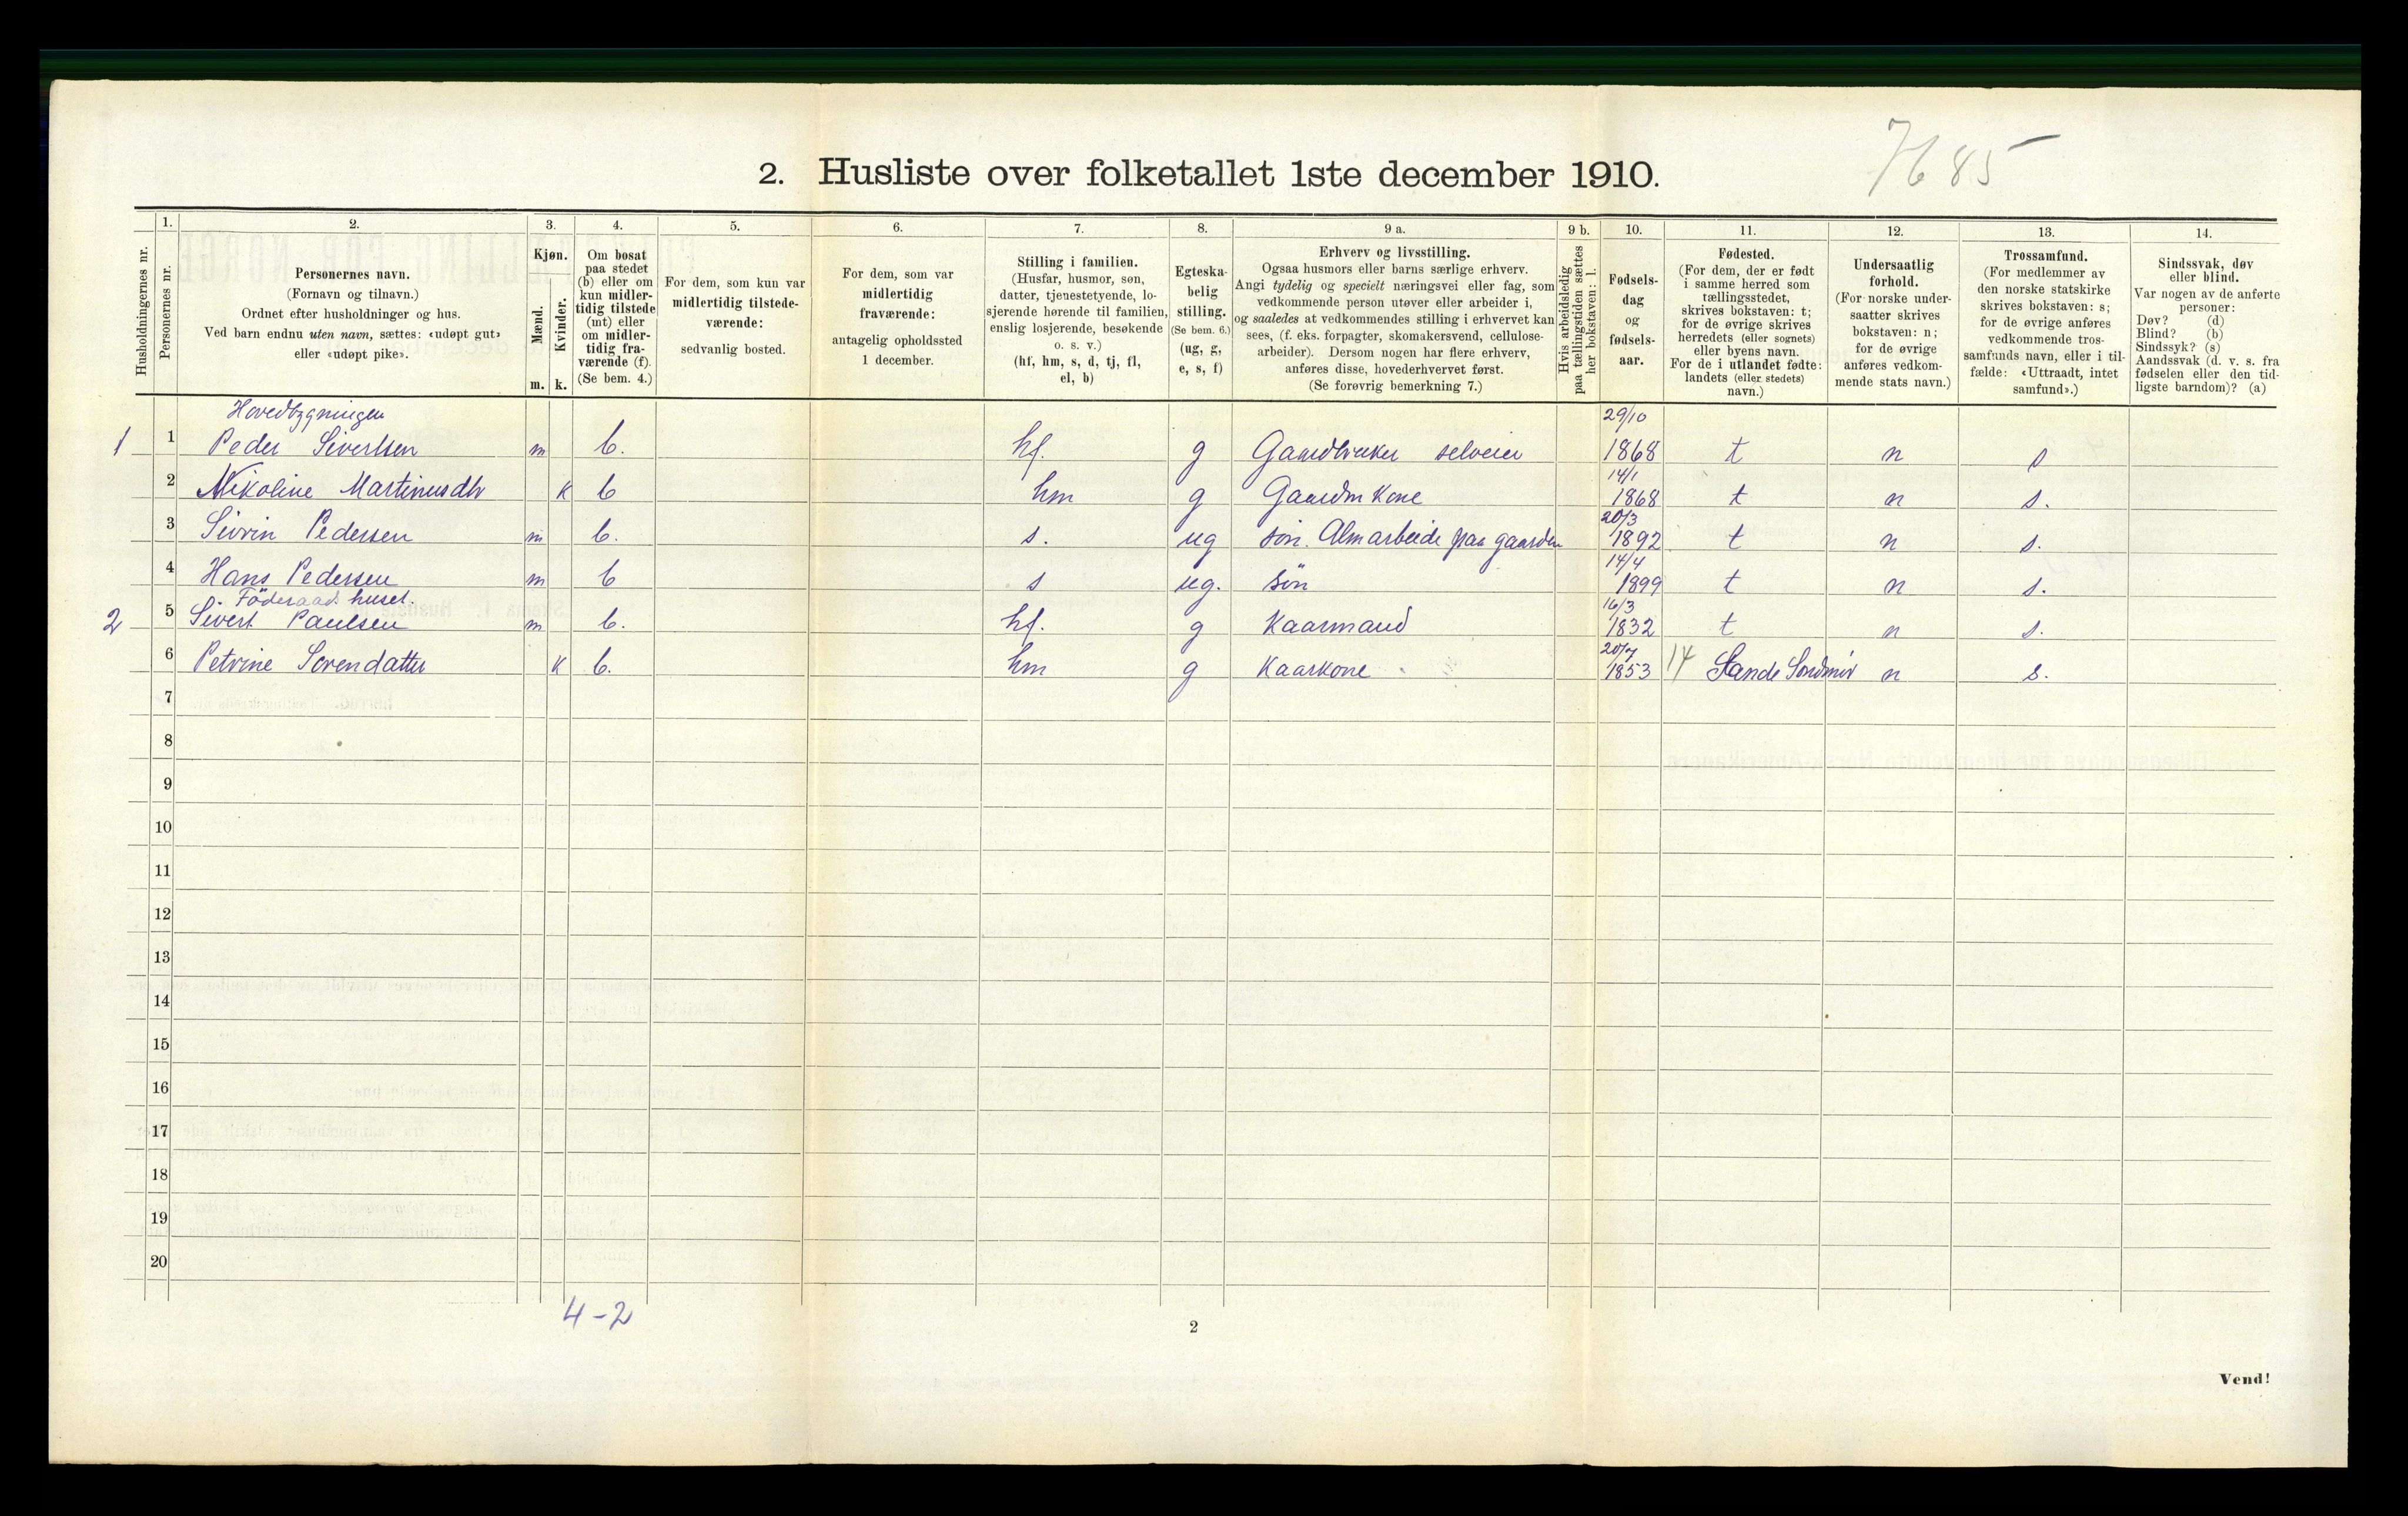 7685
2. Husliste over folketallet 1ste december 1910.
Husholdningernes nr.
1.
Personernes nr.
2.
Personernes navn.
(Fornavn og tilnavn.)
Ordnet efter husholdninger og hus.
Ved barn endnu uten navn, sættes: «udøpt gut»
eller «udøpt pike».
3.
Kjøn.
Mænd.
Kvinder.
m. k.
4.
Om bosat
paa stedet
(b) eller om
kun midler-
tidig tilstede
(mt) eller
om midler-
tidig fra-
værende (f).
(Se bem. 4.)
5.
For dem, som kun var
midlertidig tilstede-
værende:
sedvanlig bosted.
6.
For dem, som var
midlertidig
fraværende:
antagelig opholdssted
1 december.
7.
Stilling i familien.
(Husfar, husmor, søn,
datter, tjenestetyende, lo-
sjerende hørende til familien,
enslig losjerende, besøkende
o. s. v.)
(hf, hm, s, d, tj, fl,
el, b)
8.
Egteska-
belig
stilling.
(Se bem. 6.)
(ug, g,
e, s, f)
9 a.
Erhverv og livsstilling.
Ogsaa husmors eller barns særlige erhverv.
Angi tydelig og specielt næringsvei eller fag, som
vedkommende person utøver eller arbeider i,
og saaledes at vedkommendes stilling i erhvervet kan
sees, (f. eks. forpagter, skomakersvend, cellulose-
arbeider). Dersom nogen har flere erhverv,
anføres disse, hovederhvervet først.
(Se forøvrig bemerkning 7.)
9 b.
Hvis arbeidsledig
paa tællingstiden sættes
her bokstaven: l.
10.
Fødsels-
dag
og
fødsels-
aar.
11.
Fødested.
(For dem, der er født
i samme herred som
tællingsstedet,
skrives bokstaven: t;
for de øvrige skrives
herredets (eller sognets)
eller byens navn.
For de i utlandet fødte:
landets (eller stedets)
navn.)
12.
Undersaatlig
forhold.
(For norske under-
saatter skrives
bokstaven: n;
for de øvrige
anføres vedkom-
mende stats navn.)
13.
Trossamfund.
(For medlemmer av
den norske statskirke
skrives bokstaven: s;
for de øvrige anføres
vedkommende tros-
samfunds navn, eller i til-
fælde: «Uttraadt, intet
samfund».)
14.
Sindssvak, døv
eller blind.
Var nogen av de anførte
personer:
Døv? (d)
Blind? (b)
Sindssyk? (s)
Aandssvak (d. v. s. fra
fødselen eller den tid-
ligste barndom)? (a)
Hovedbygningen
1 1 Peder Sivertsen m b. hf. g Gaardbruker selveier 29/10 1868 t n s
2 Nikoline Martinusdtr k b hm g Gaardm kone 14/1 1868 t n s.
3 Sivrin Pedersen m b. s. ug søn. Alm arbeide paa gaarden 20/3 1892 t n s.
4 Hans Pedersen m b s ug. søn 14/4 1899 t n s.
Föderaads huset.
2 5 Sivert Paulsen m b. hf. g Kaarmand 16/3 1832 t n s.
6 Petrine Sorendatter k b. hm g Kaarkone 20/7 1853 14 Sande Søndmör n s.
7
8
9
10
11
12
13
14
15
16
17
18
19
20
4-2
2
Vend!